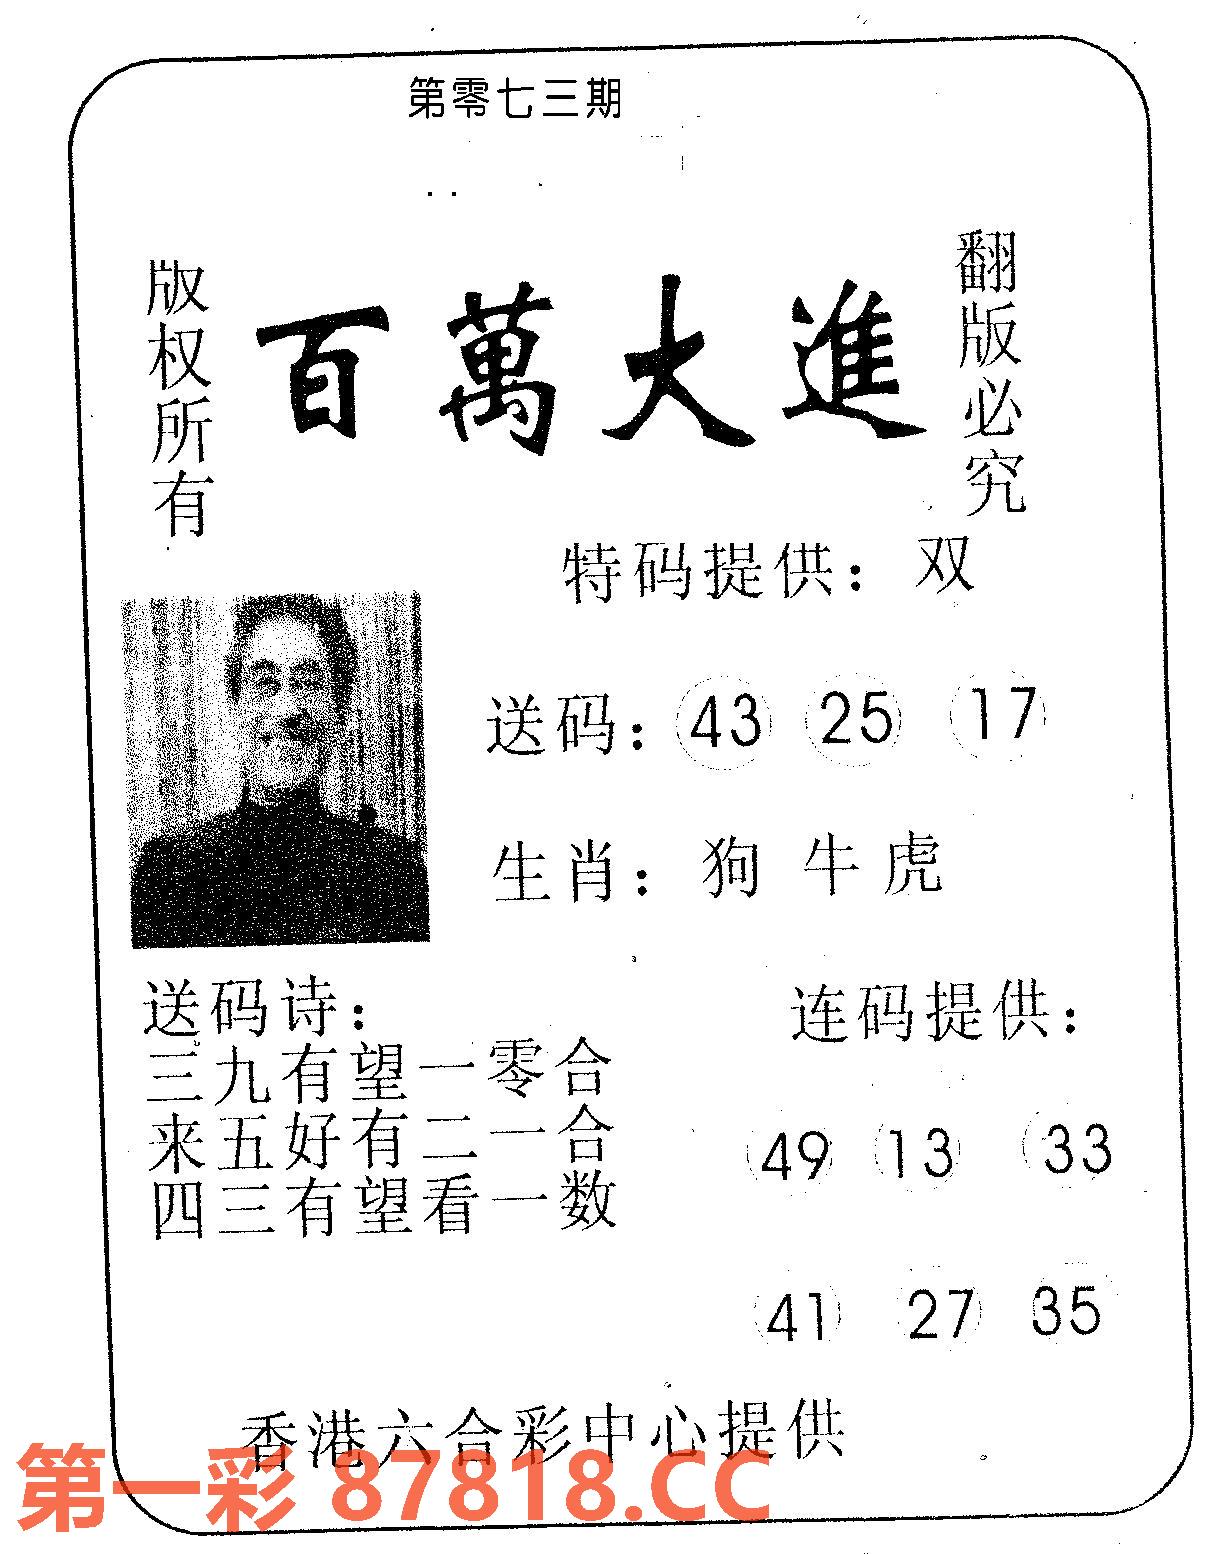 第零七三期
版权所有
百萬大進
翻版必究
特码提供：双
送码：43 25 17
生肖：狗 牛 虎
送码诗：
三九有望一零合
来五好有二一合
四三有望看一数
连码提供：
49 13 33
41 27 35
香港六合彩中心提供
第一彩 87818.CC